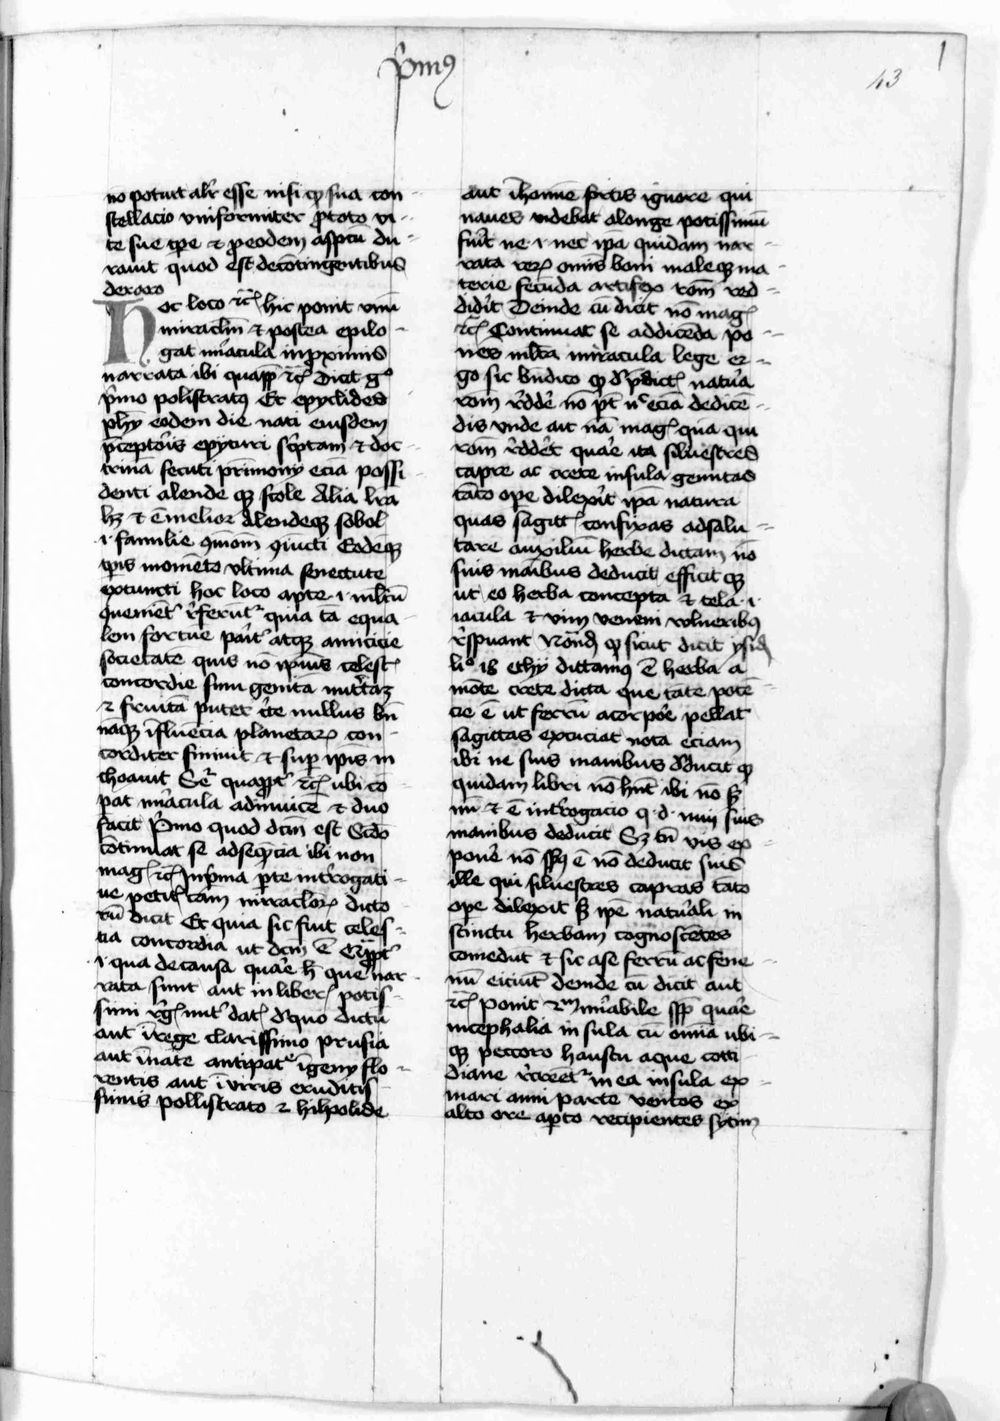 p̄mꝰ
1
43
no potuit alr̄ esse nisi qꝫ sua con
stellacio vniformiter ꝓtoto vi
te sue tꝑe ⁊ ꝑeodem aspctū du
rauit quod est decōtingentibus
deraro
Hoc loco ⁊c̄ hic ponit vnū
miraclm̄ ⁊ postea epilo
gat mi̅acula inꝓximis
narrata ibi quapp̄ ⁊c̄ Dicit gͦ
p̄mo polistratꝰ Et epyclides
phȳ eodem die nati eiusdem
p̄ceptor̄is epycuri sc̄ptam ⁊ doc
trinā secuti pr̄imony eciā possi
denti alende qꝫ scole Alia lr̄a
hꝫ ⁊ ē melior Alendeqꝫ sobol̄
.i. familie ꝯmōm ꝯiūcti Eodēqꝫ
tꝑis momēto vltima senectute
extuncti hoc loco apte .i. mltū
ꝯuenient̄ r̄ferūt᷑ quia tā equa
lem fortūe par̄it᷑ atqꝫ amicicie
societatē quis nō ipius celest̄
concordie sinu genitā nutritā
⁊ finitā putet c̄te nullus bn̄
nāqꝫ īfluēcia planetaꝝ con
corditer finiuit ⁊ suꝑ ipīs in
choauit Sꝫ quapp̄t᷑ ⁊c̄ ubi cō
pat mi̅acula adinuicē ⁊ duo
facit P̄mo quod dc̄m est Scd̄o
cōtinuat se adseqn̄cia ibi non
maḡ ⁊c̄ Inp̄ma ꝑte int̄rogati
ue petit᷑ cām mirraclorꝝ dicto
rū dicit Et quia sic fuit celes
tia concordia ut dc̄m ē Quapp̄t᷑
.i. qua decausa quar̄e h̄ que nar
rata sunt aut in liber̄ potis
simi r̄ḡ mit᷑dat̄ dequo dictū
aut ī rege clarissimo prusia
aut īnate antipat᷑ īgeny flo
rentis aut ī virris eruditis
simis pollistrato ⁊ hihpolide
aut ī homīe fortis ignore qui
naues videbat alonge potissimū
fuit ne .i. nec ip̄a quidam nar
rata reꝝ omīs boni maleqꝫ ma
terie fecūda artifex rōm̄ red
didit Deinde cū dicit nō maḡ
⁊c̄ Continuat se addicēda po
nes mlt̄a miracula lege er
go sic bn̄dico qꝫ de p̄dict̄ natūa
rōm r̄dde̅ nō p̄t nͨ eciā dedicē
dis vnde ait nā maḡ quā qui
rōm r̄dde̅t quar̄e ita siluestres
capre ac crete insula genitas
tāto ope dilexit ip̄a natura
quas sagitt̄ confixas adsalu
tare auxiliū herbe dictam nō
suis māibus deducit efficit qꝫ
ut eo herba concepta ⁊ tela .i.
iacula ⁊ vim veneni vulneribꝰ
r̄spuant Nōnd̄ qꝫ sicut dicit ysid̄
liͦ 18 ethy dittamꝰ ē herba a
mōte crete dicta que tāte potē
cie ē ut ferrū acorpor̄e pellat
sagittas excuciat nota eciam
ibi ne suis manibus dēducit qꝫ
quidam libri nō hn̄t ibi nō sꝫ
nū ⁊ ē int̄rogacio q.d. nū suis
manibus deducit Sꝫ tn̄ vis ex
pone̅ nō sꝰ ē nō deducit suis
ille qui siluestres capras tāto
ope dilexit sꝫ ip̄e natur̄ali in
stinctu herbam cognoscētes
comedūt ⁊ sic ase ferrū ac fene
nū eiciūt deinde cū dicit aut
⁊c̄ Ponit 2m mi̅abile sp̄p quar̄e
incephalia in sula cū omīa ubi
qꝫ peccoro haustu aque cotti
diane r̄creēt᷑ in ea insula ex
mari anni parte ventos ex
alto ore aꝑto recipientes sytim